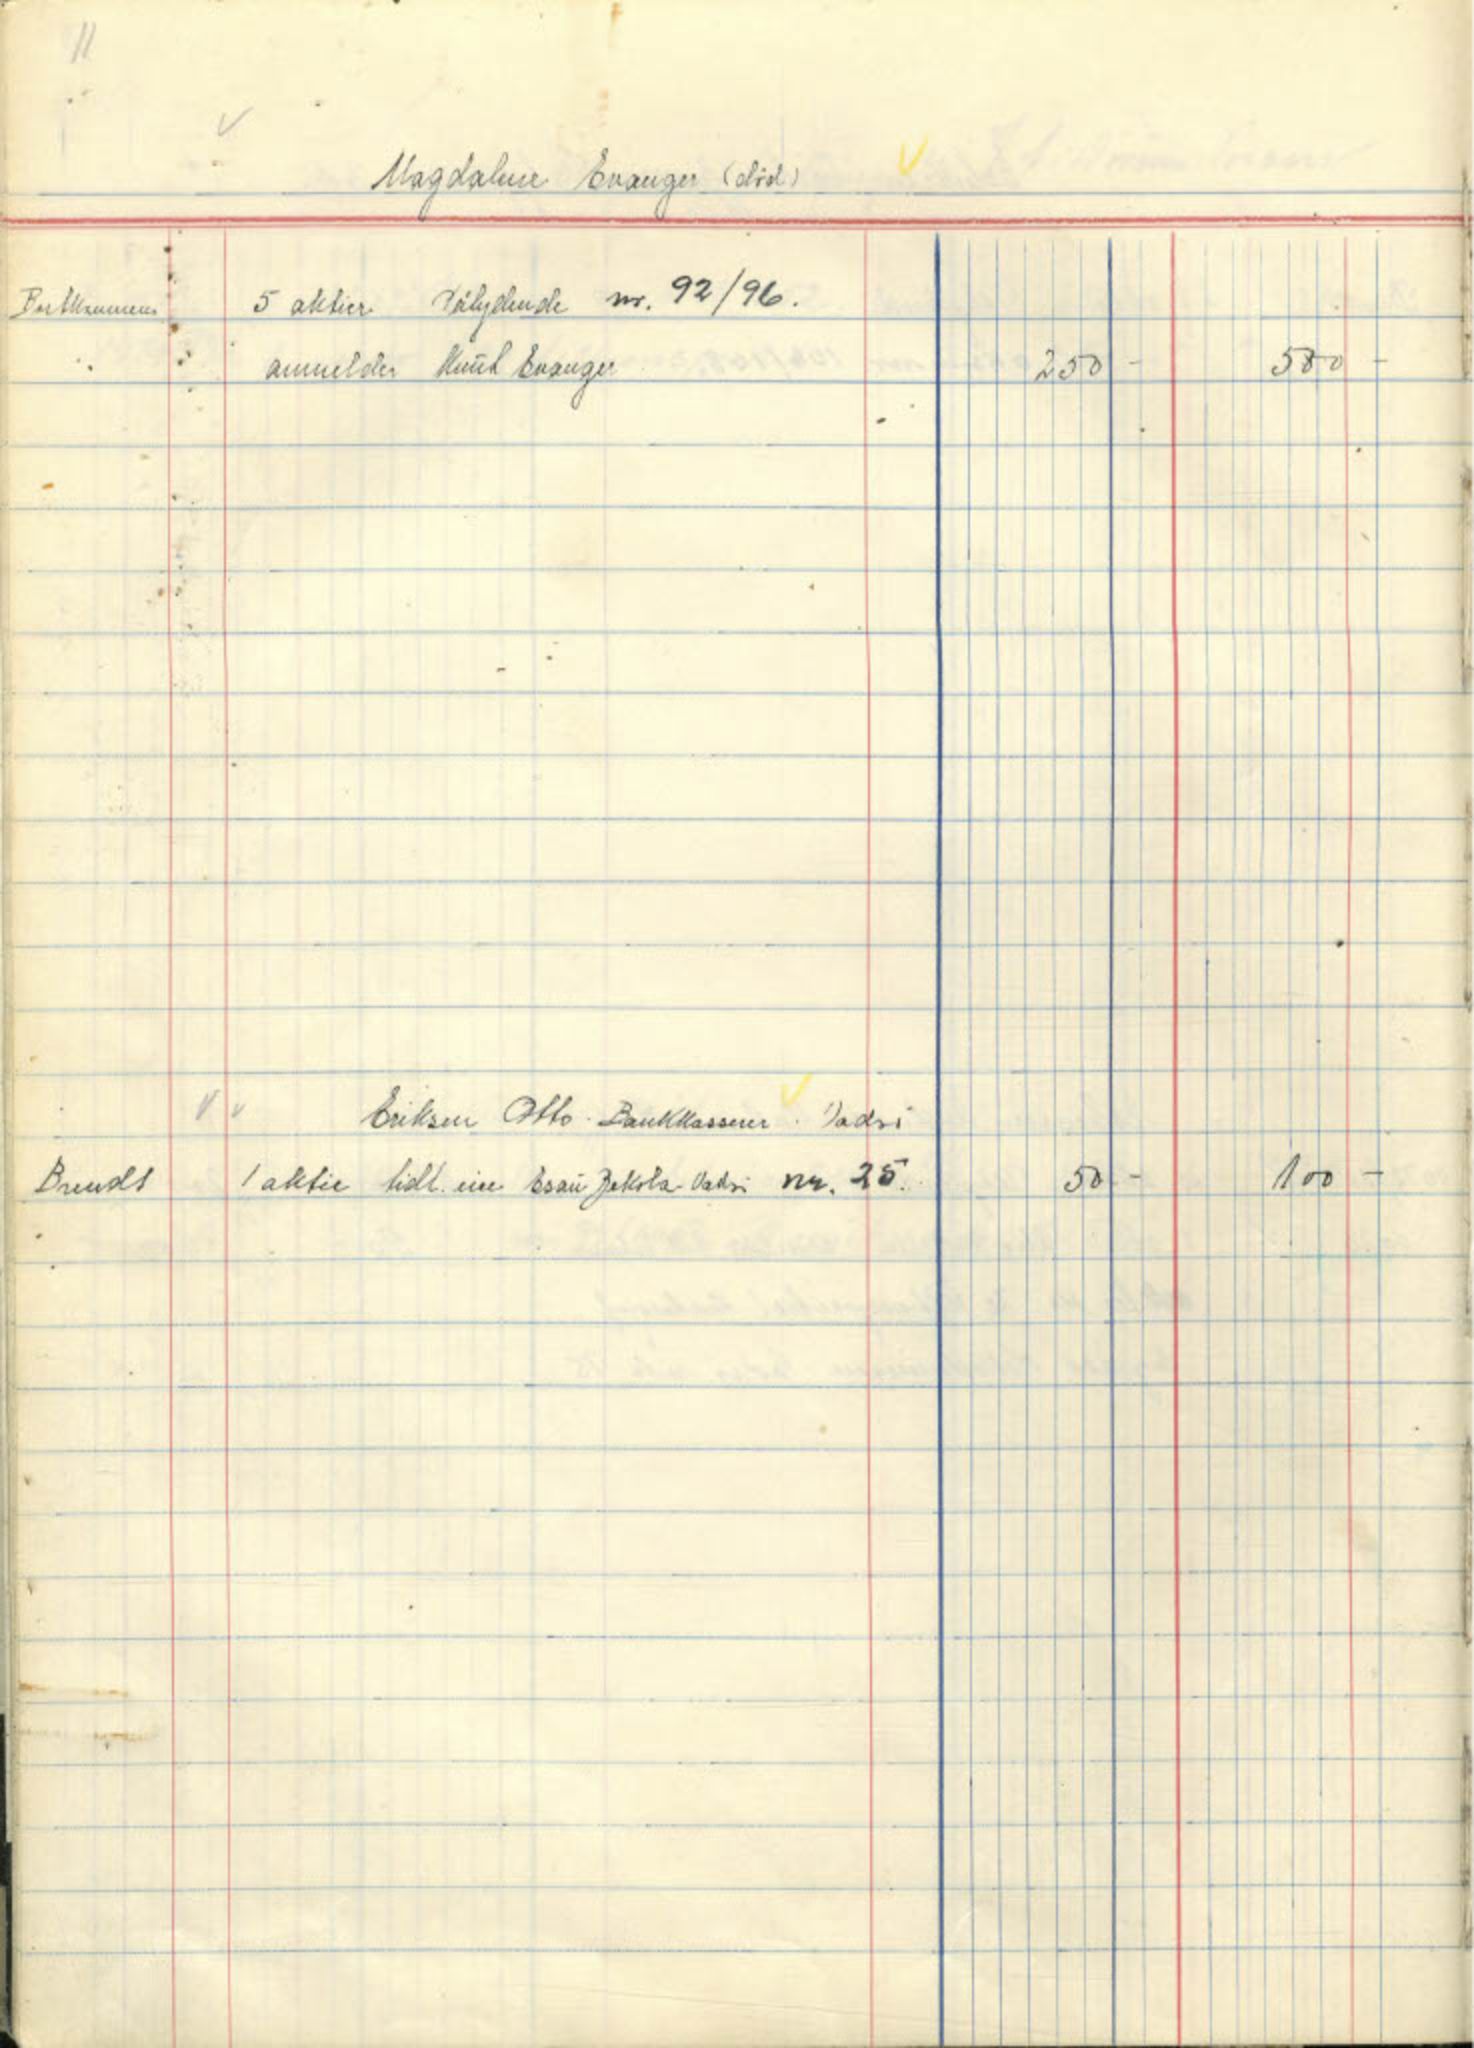 11
Magdalene Evanger (död)
Bortkommen 5 aktier Pålydende nr. 92/96.
anmelder Knut Evanger 250 - 500 -
Eriksen Otto. Bankkasserer. Vadsö
Brendt 1 aktie tidl. eier Esau Jekola Vadsö nr. 25. 50 - 100 -